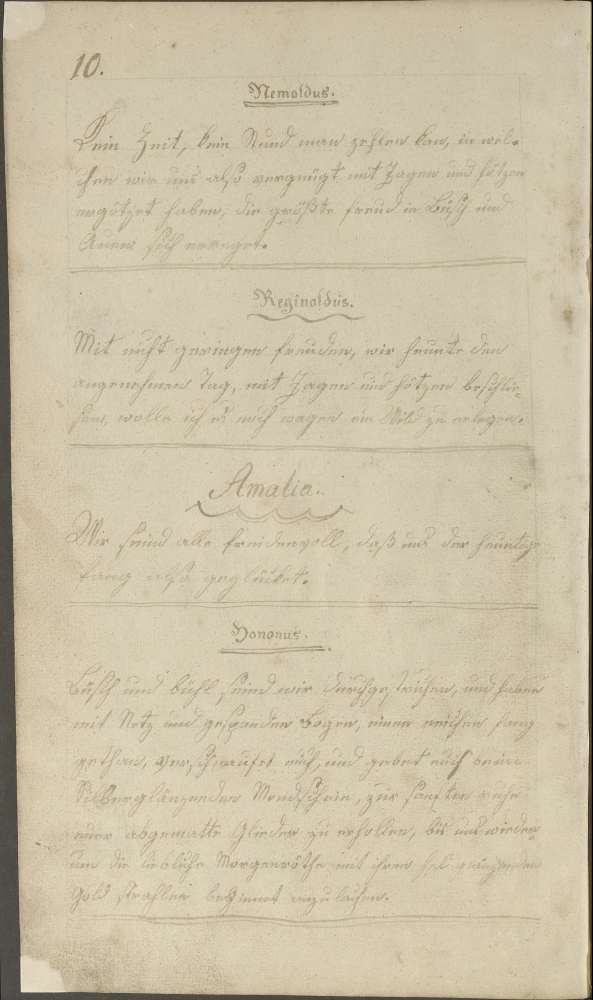 10.
Nemoldus.
Kein Zeit, kein Stund man zehlen kan, in wel-
chen wir uns also vergnügt mit Jagen und hötzen
ergötzet haben, die größte freud in Busch und
Auen sich erreget.
Reginoldus.
Mit nicht geringen freuden, wir heunte den
angenehmen Tag, mit Jagen und hötzen beschlie-
sen, wolle ich es noch wagen ein Wild zu erlegen.
Amalia.
Wir seind alle freudenvoll, daß uns der heuntige
fang also geglücket.
Hononus.
Busch und bühl seind wir durchgestrichen, und haben
mit Netz und gespanden Bogen, einen reichen fang
gethan, verschnaufet euch, und gebet euch beim
Silberglänzenden Mondschein, zur sanften ruhe
euer abgematte Glieder zu erhollen, bis uns wieder
um die liebliche Morgenröthe mit ihren hel
Gold strahlen beginnet anzulachen.